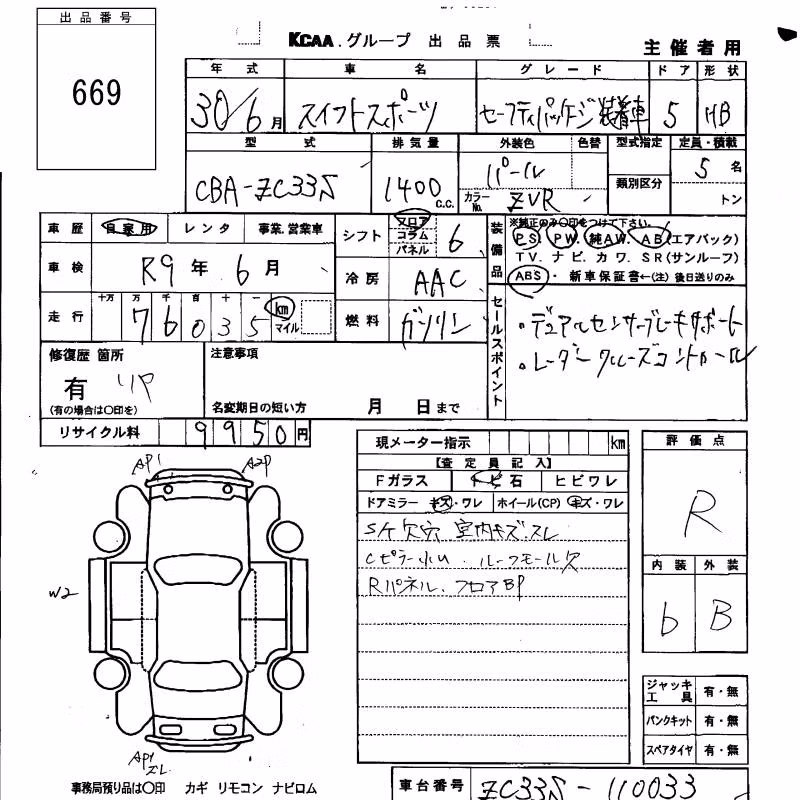 出品番号
669
KCAA.グループ 出品票
主催者用
年式 車名 グレード ドア 形状
30/6月 スイフトスポーツ セーフティパッケージ装着車 5 HB
型式 排気量 外装色 色替 型式指定 定員・積載
CBA-ZC33S 1400 C.C. パール 類別区分 5名
カラーNo. ZVR トン
車歴 自家用 レンタ 事業.営業車
シフト フロア コラム パネル 6
装備品 ※純正のみ○印をつけて下さい。
PS. PW. 純AW. AB(エアバック)
TV. ナビ. カワ. SR(サンルーフ)
ABS・ 新車保証書←(注)後日送りのみ
車検 R9年 6月
冷房 AAC
走行 十万 万 千 百 十 一
76035 km マイル
燃料 ガソリン
セールスポイント
・デュアルセンサーブレーキサポート
・レーダークルーズコントロール
修復歴 箇所
有 リヤ
(有の場合は○印を)
注意事項
名変期日の短い方 月 日まで
リサイクル料 9950円
現メーター指示 km
【査定員記入】
Fガラス トビ石 ヒビワレ
ドアミラー キズ・ワレ ホイール(CP) キズ・ワレ
S/ケ欠穴 室内キズ.スレ
Cピラー小U. ルーフモール欠
Rパネル.フロアBP
評価点
R
内装 外装
b B
AP1 A2P
W2
AP1
スレ
ジャッキ工具 有・無
パンクキット 有・無
スペアタイヤ 有・無
事務局預り品は○印 カギ リモコン ナビロム
車台番号 ZC33S-110033